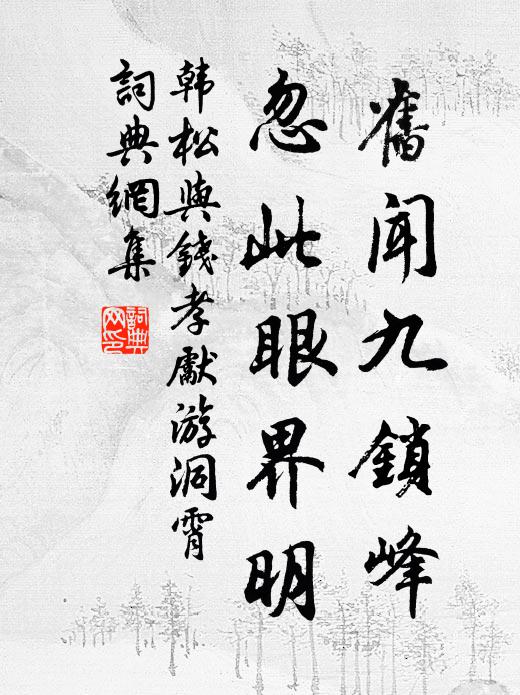 舊聞九鎖峰
忽此眼界明
韩松與錢孝獻游洞霄
詞典網集
詞典网印